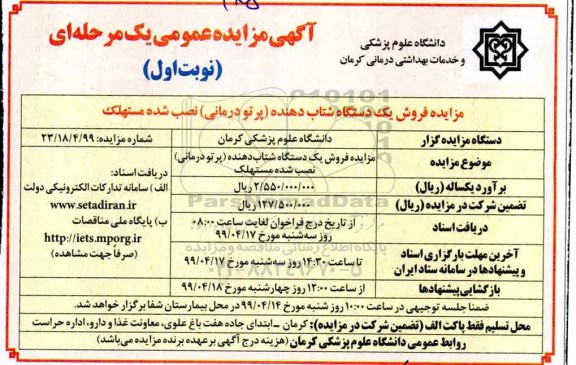 آگهی مزایده عمومی یک مرحله‌ای
(نوبت اول)
دانشگاه علوم پزشکی
و خدمات بهداشتی درمانی کرمان
مزایده فروش یک دستگاه شتاب دهنده (پرتو درمانی) نصب شده مستهلک
دستگاه مزایده گزار
دانشگاه علوم پزشکی کرمان
شماره مزایده: ۲۳/۱۸/۴/۹۹
موضوع مزایده
مزایده فروش یک دستگاه شتاب‌دهنده (پرتو درمانی)
نصب شده مستهلک
برآورد یکساله (ریال)
۲/۵۵۰/۰۰۰/۰۰۰ ریال
تضمین شرکت در مزایده (ریال)
۱۲۷/۵۰۰/۰۰۰ ریال
دریافت اسناد
از تاریخ درج فراخوان لغایت ساعت ۰۸:۰۰
روز سه‌شنبه مورخ ۹۹/۰۴/۱۷
آخرین مهلت بارگزاری اسناد
و پیشنهادها در سامانه ستاد ایران
تا ساعت ۱۴:۳۰ روز سه‌شنبه مورخ ۹۹/۰۴/۱۷
بازگشایی پیشنهادها
از ساعت ۱۲:۰۰ روز چهارشنبه مورخ ۹۹/۰۴/۱۸
دریافت اسناد:
الف) سامانه تدارکات الکترونیکی دولت
www.setadiran.ir
ب) پایگاه ملی مناقصات
http://iets.mporg.ir
(صرفاً جهت مشاهده)
ضمنا جلسه توجیهی در ساعت ۱۰:۰۰ روز شنبه مورخ ۹۹/۰۴/۱۴ در محل بیمارستان شفا برگزار خواهد شد.
محل تسلیم فقط پاکت الف (تضمین شرکت در مزایده): کرمان - ابتدای جاده هفت باغ علوی، معاونت غذا و دارو، اداره حراست
روابط عمومی دانشگاه علوم پزشکی کرمان (هزینه درج آگهی بر عهده برنده مزایده می‌باشد)
ParsNamadData
پایگاه اطلاع رسانی مناقصه و مزایده
۰۲۱-۸۸۳۴۹۶۷۰-۵